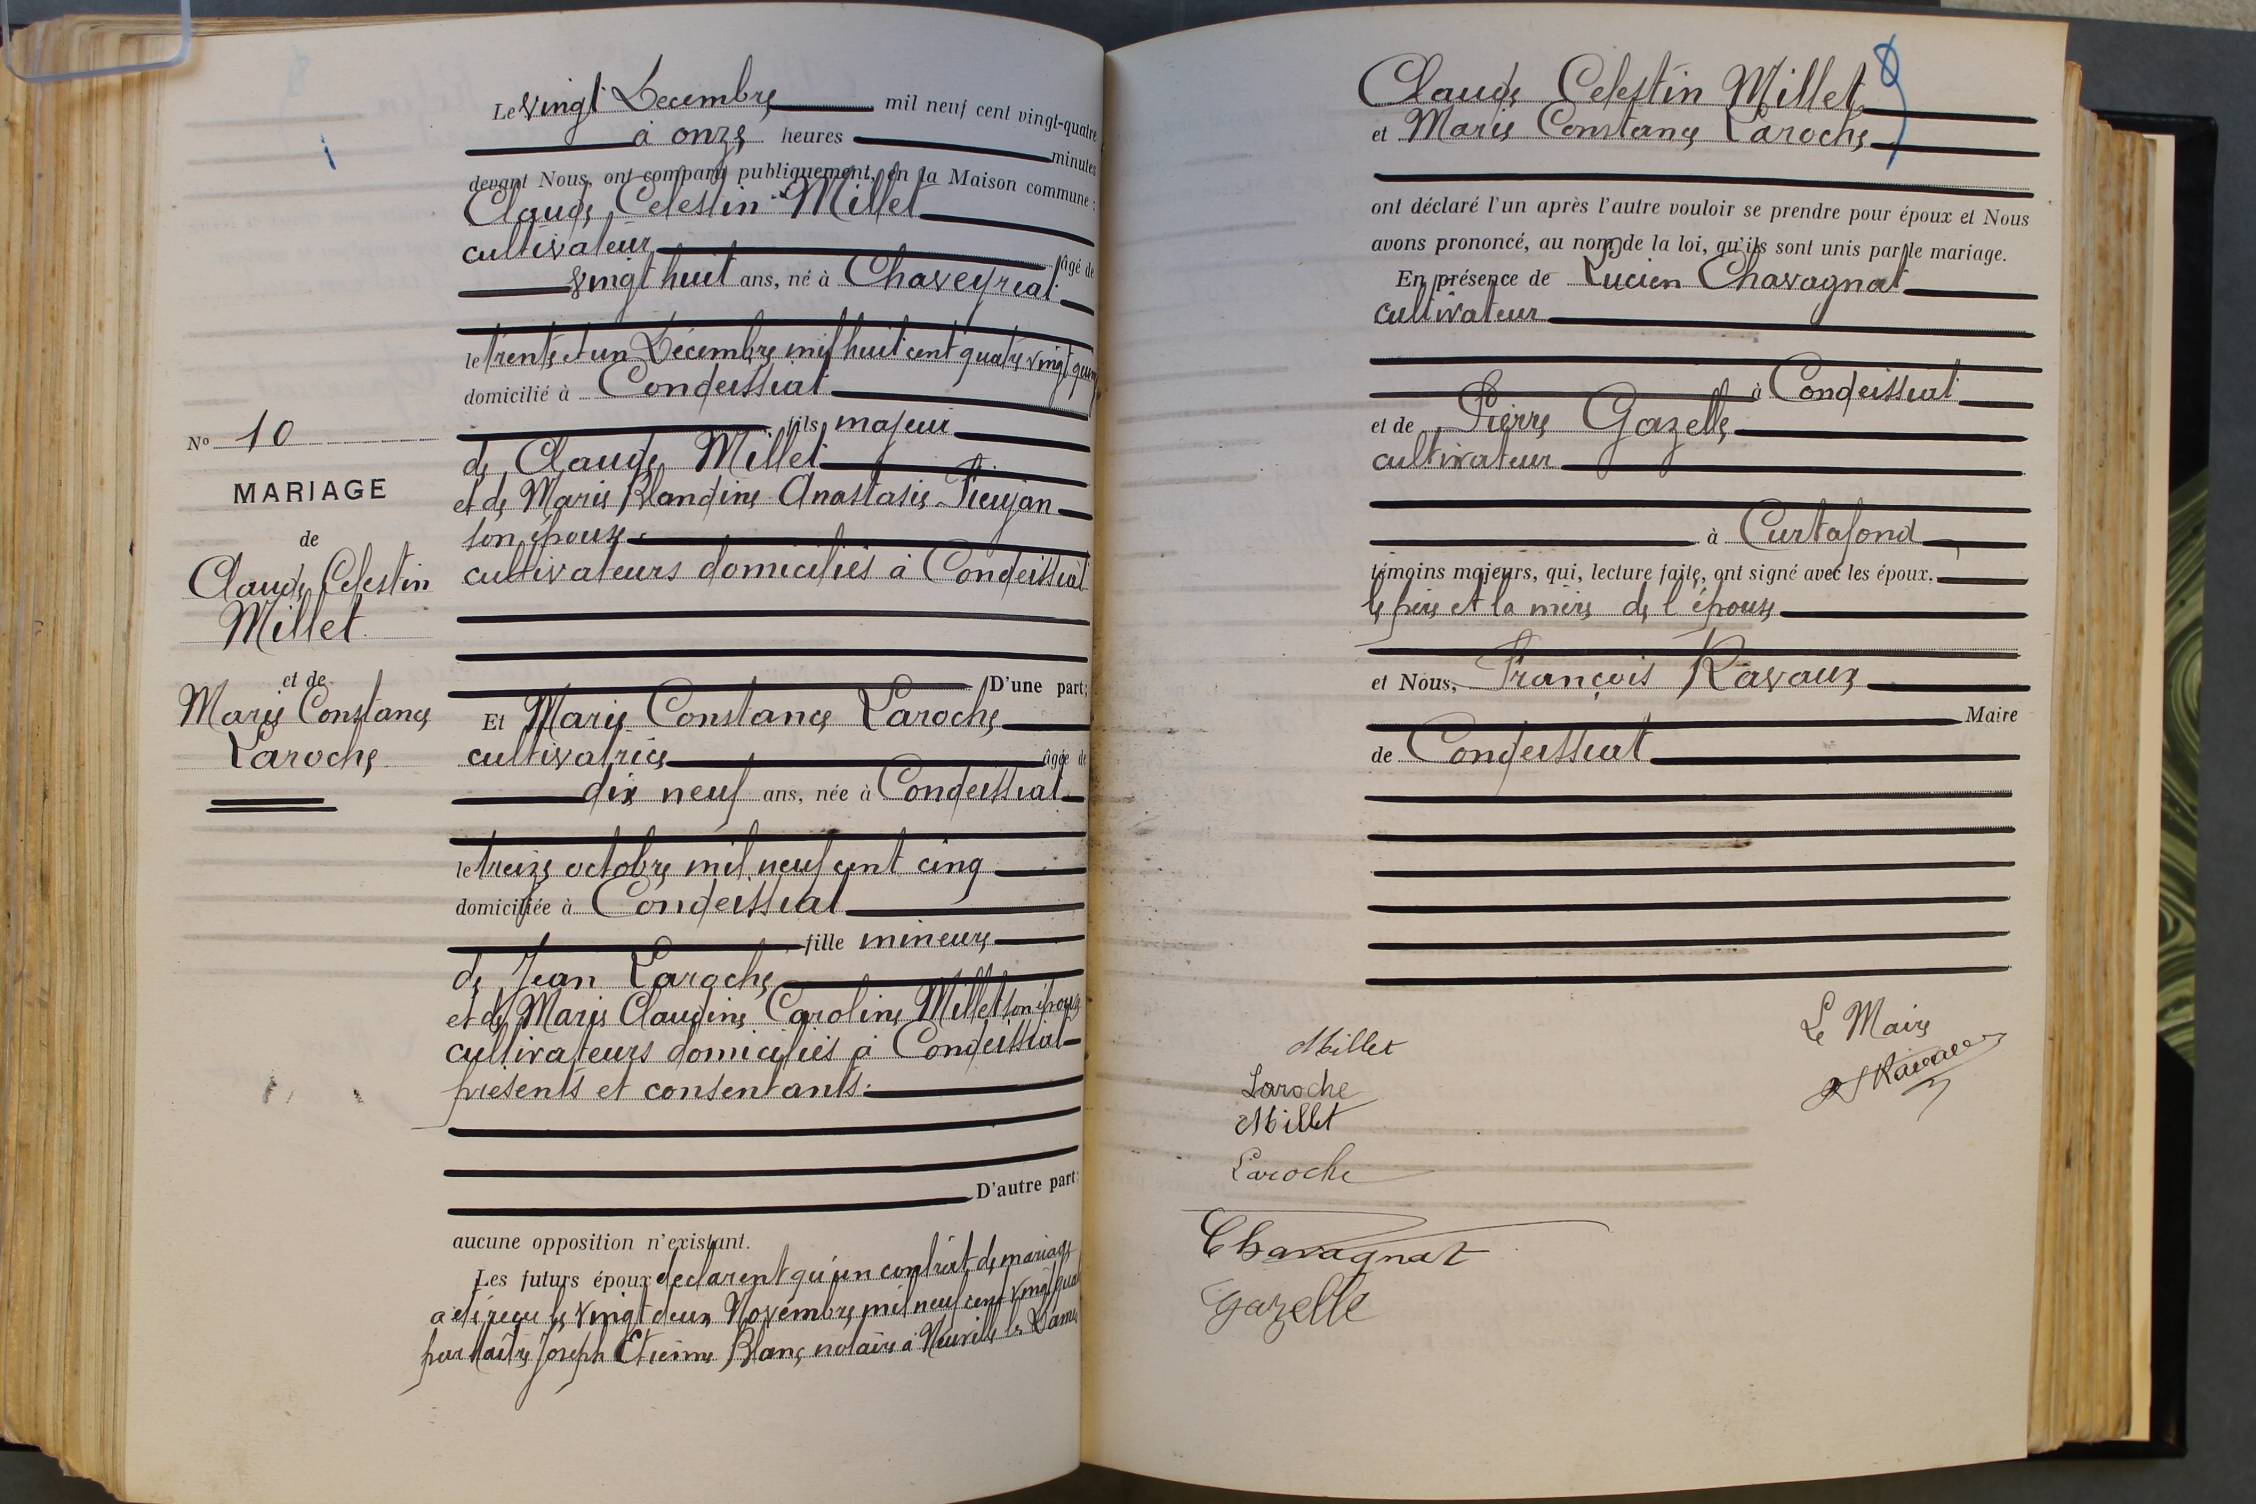 Le vingt Décembre mil neuf cent vingt-quatre
à onze heures minutes
devant Nous, ont comparu publiquement, en la Maison commune :
Claude Celestin Millet
cultivateur âgé de
vingt huit ans, né à Chaveyriat
le trente et un Décembre mil huit cent quatre vingt quinze
domicilié à Condeissiat
fils majeur
de Claude Millet
et de Marie Blandine Anastasie Pieujan
son épouse
cultivateurs domiciliés à Condeissiat
D'une part;
Et Marie Constance Laroche
cultivatrice âgée de
dix neuf ans, née à Condeissiat
le treize octobre mil neuf cent cinq
domiciliée à Condeissiat
fille mineure
de Jean Laroche
et de Marie Claudine Caroline Millet son épouse
cultivateurs domiciliés à Condeissiat
présents et consentants.
D'autre part;
aucune opposition n'existant.
Les futurs époux declarent qu'un contrat de mariage
a été reçu le vingt deux Novembre mil neuf cent vingt quatre
par Maître Joseph Etienne Blanc notaire à Neuville les Dames
N° 10
MARIAGE
de
Claude Celestin
Millet
et de
Marie Constance
Laroche
8
Claude Celestin Millet
et Marie Constance Laroche
ont déclaré l'un après l'autre vouloir se prendre pour époux et Nous
avons prononcé, au nom de la loi, qu'ils sont unis par le mariage.
En présence de Lucien Chavagnat
cultivateur
à Condeissiat
et de Pierre Gazelle
cultivateur
à Curtafond
témoins majeurs, qui, lecture faite, ont signé avec les époux.
le père et la mère de l'épouse
et Nous, François Ravaux
Maire
de Condeissiat
Le Maire
Millet
Laroche
Millet
Laroche
Chavagnat
Gazelle